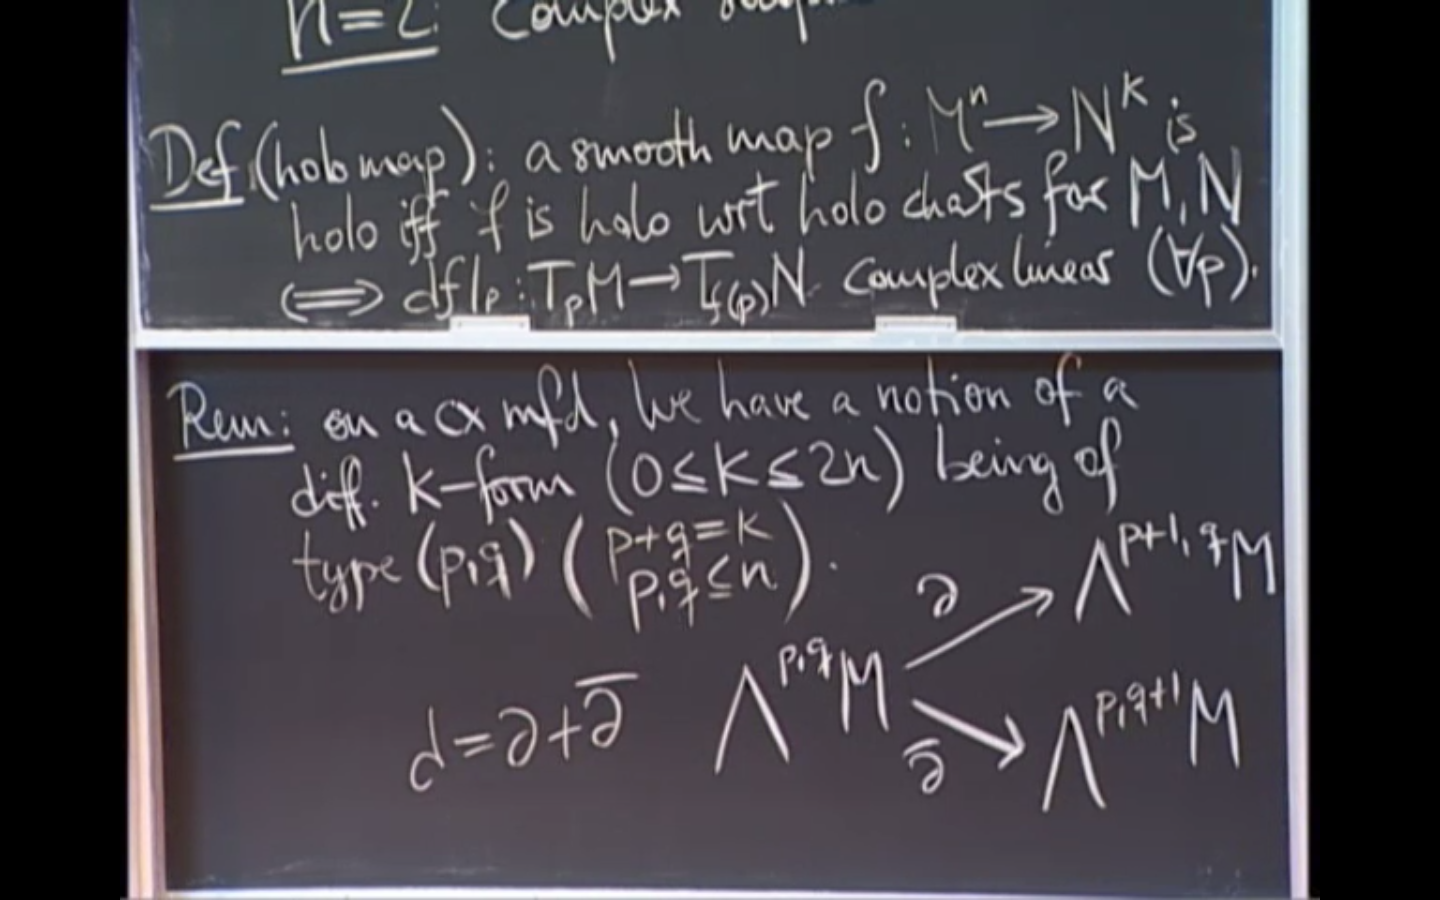 n=2: Complex
Def (holo map): a smooth map f: Mⁿ → Nᵏ is
holo iff f is holo wrt holo charts for M, N
⟺ df|ₚ : TₚM → T_f(p)N complex linear (∀p).
Rem: on a cx mfd, we have a notion of a
diff. k-form (0≤k≤2n) being of
type (p,q) (p+q=k
p,q≤n).
∂ Λ^{p+1,q}M
d=∂+∂̄ Λ^{p,q}M
∂̄ Λ^{p,q+1}M